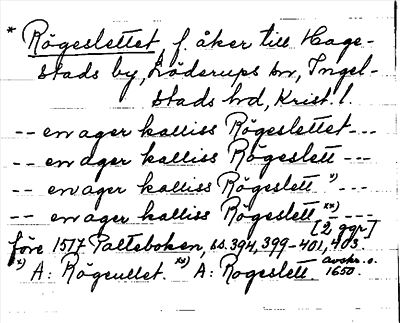 * Rögeslettet, f. åker till Hage-
stads by, Löderups sn, Ingel-
stads hd, Krist. l.
-- en ager kalliss Rögeslettet ---
-- en ager kalliss Rögeslett ---
-- en ager kalliss Rögeslett x) ---
-- en ager kalliss Rögeslett xx) ----
[2 ggr]
före 1517 Palteboken, ss. 394, 399-401, 403.
x) A: Rögeullet. xx) A: Rogeslett. avskr. o. 1650.